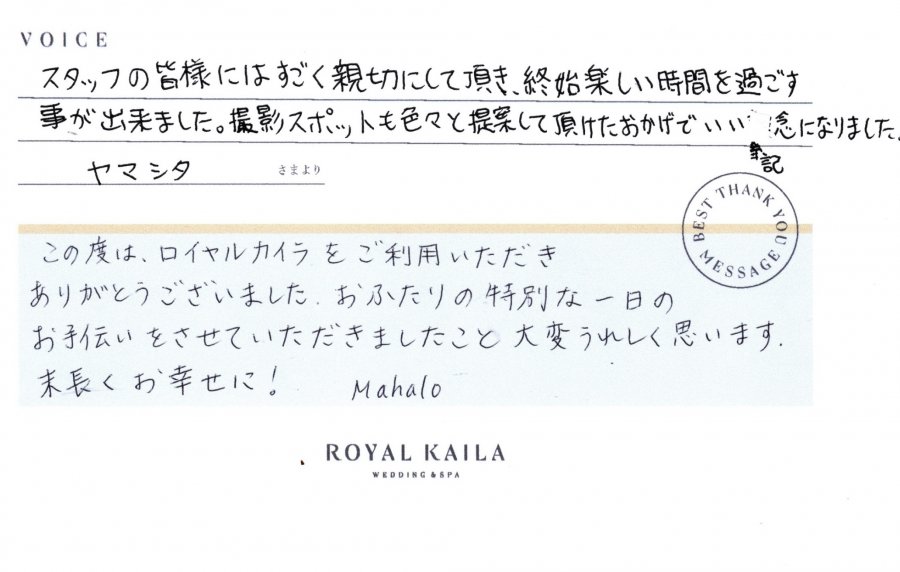 VOICE
スタッフの皆様にはすごく親切にして頂き、終始楽しい時間を過ごす
事が出来ました。撮影スポットも色々と提案して頂けたおかげでいい 念になりました。
記
ヤマシタ さまより
BEST THANK YOU MESSAGE
この度は、ロイヤルカイラをご利用いただき
ありがとうございました. おふたりの特別な一日の
お手伝いをさせていただきましたこと 大変うれしく思います.
末長くお幸せに! Mahalo
ROYAL KAILA
WEDDING & SPA